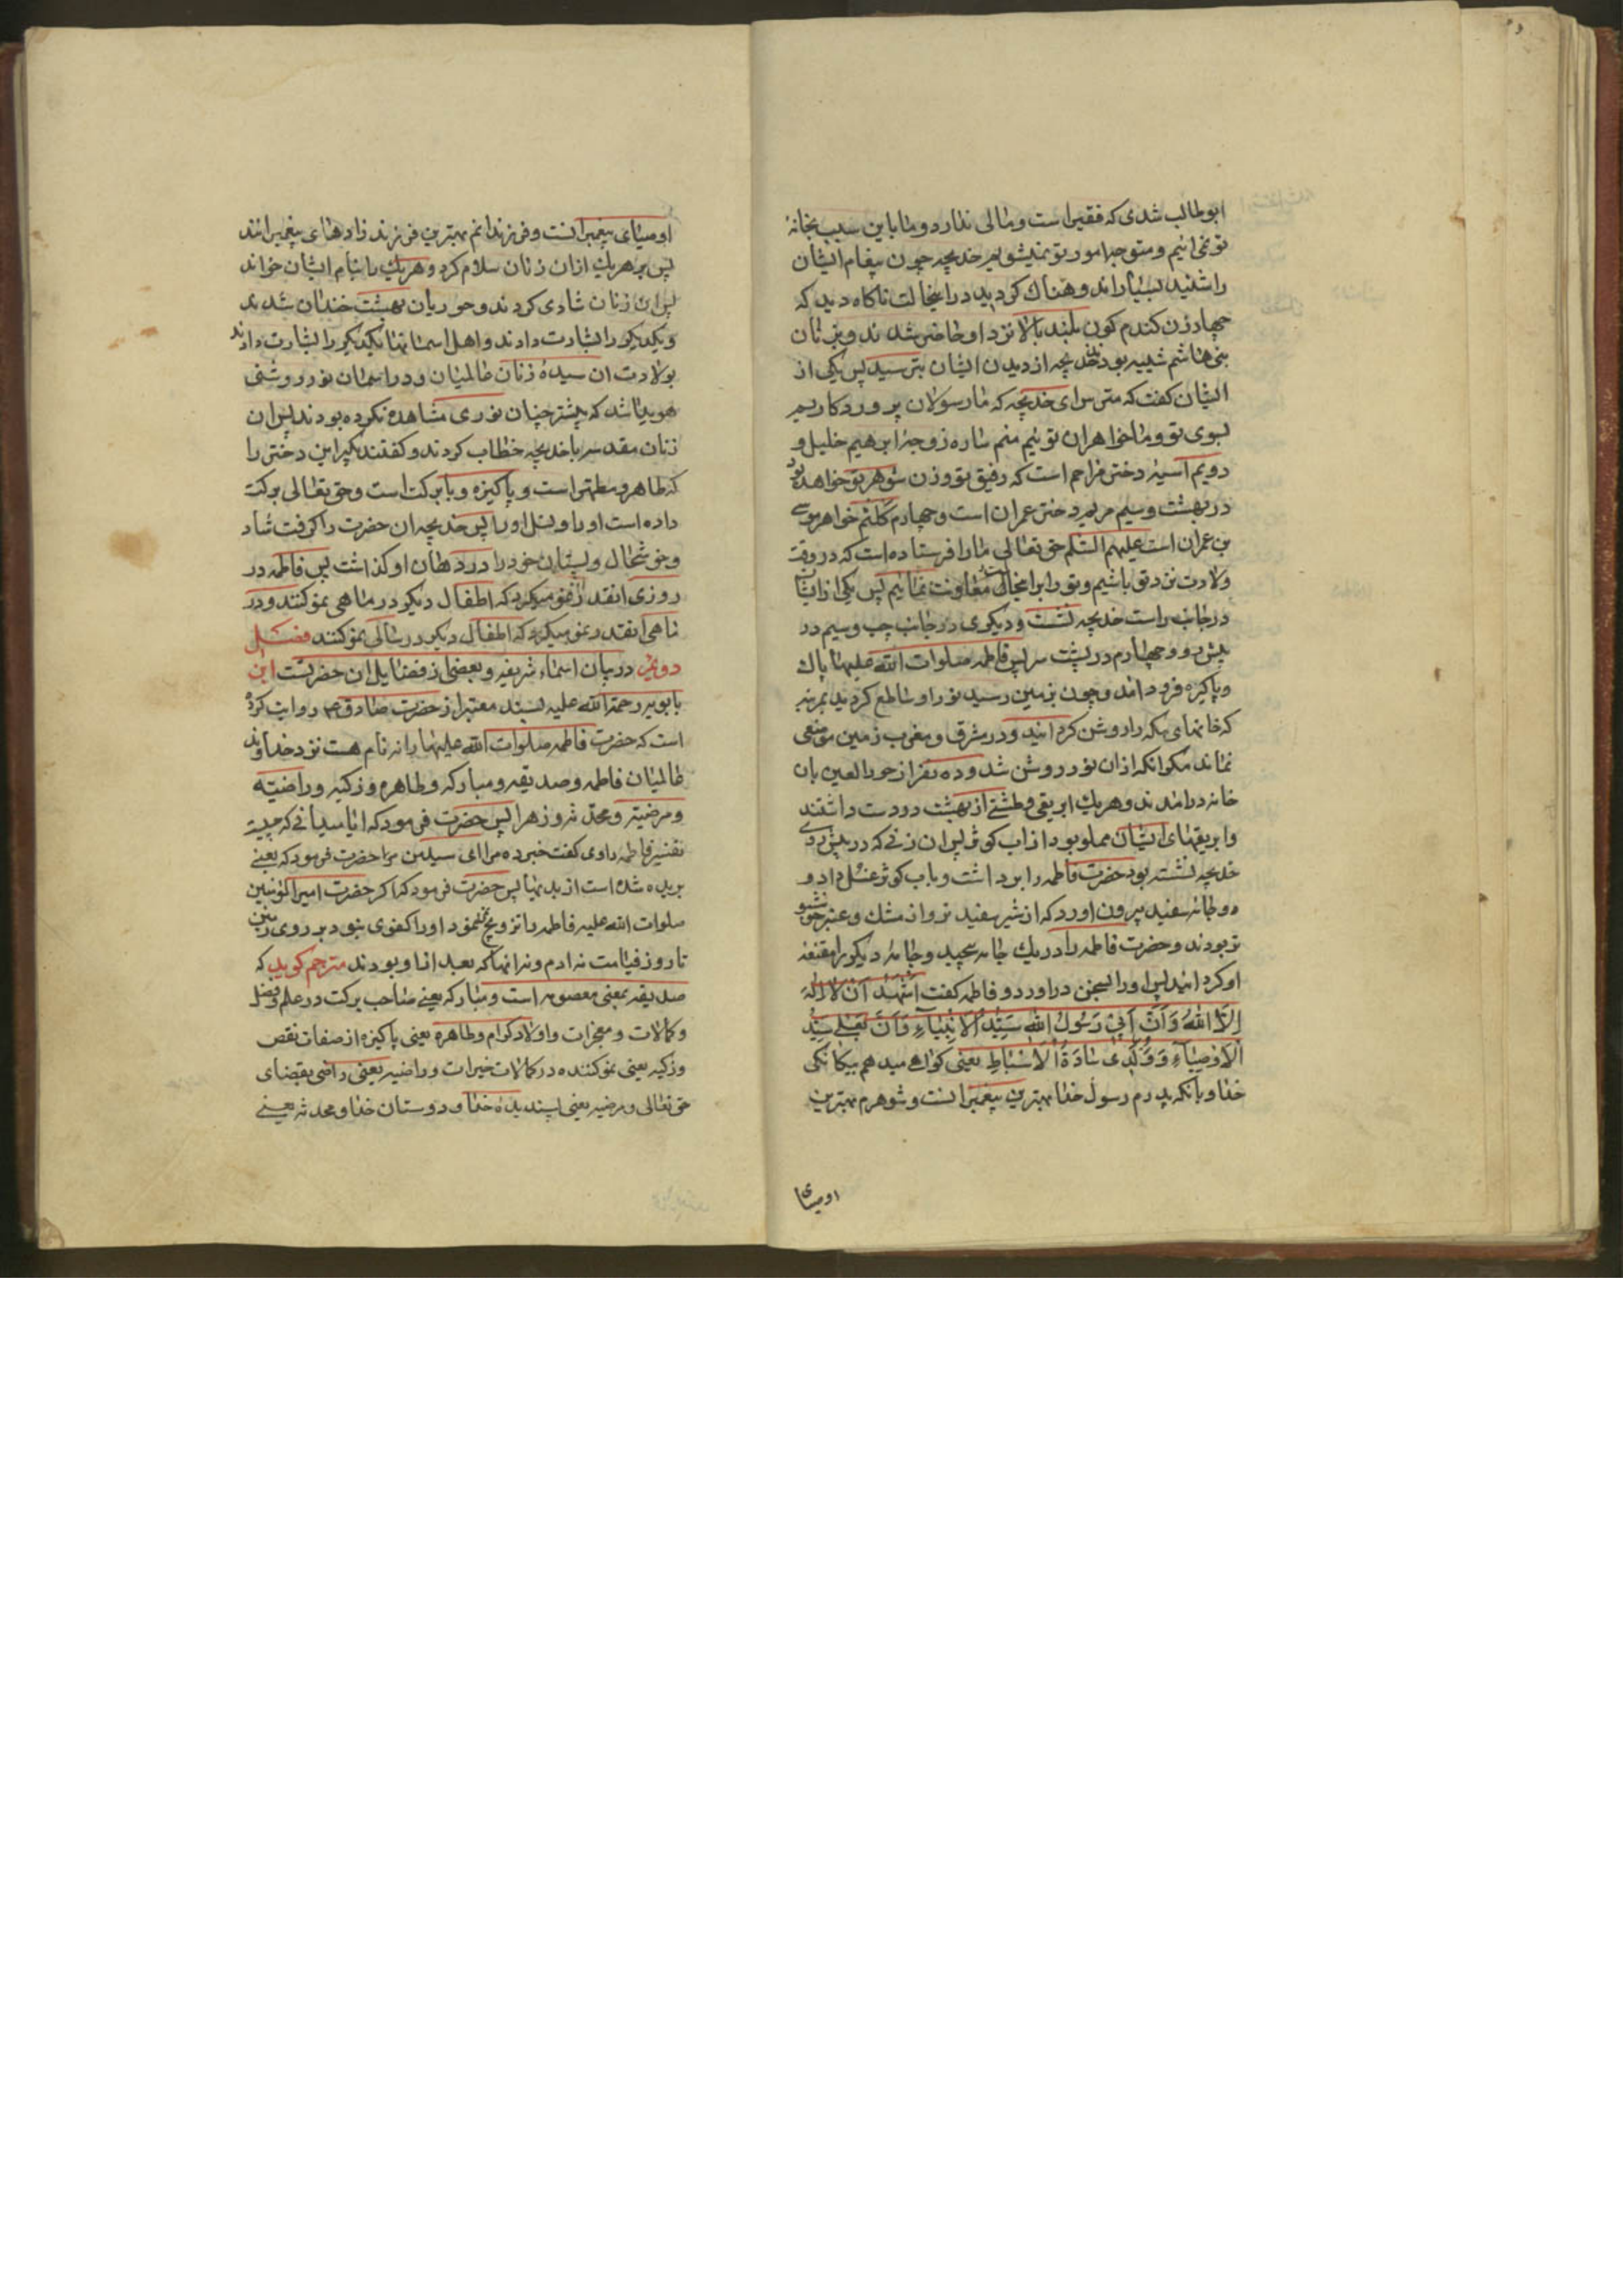 ابوطالب شدی که فقیر است و مالی ندارد و ما باین سبب بخانهٔ
تو نمی‌ائیم و متوجه امور تو نمیشویم خدیجه چون پیغام ایشان
را شنید بسیار اندوهناک کردید در اینحالت ناکاه دید که
چهار زن کندم کون بلند بالا نزد او حاضر شدند و بزنان
بنی هاشم شبیه بودند خدیجه از دیدن ایشان بترسید پس یکی از
ایشان کفت که مترس ای خدیجه که ما رسولان پروردکاریم
بسوی تو و ما خواهران توئیم منم ساره زوجهٔ ابرهیم خلیل و
دویم آسیه دختر مزاحم است که رفیق تو و زن شوهر تو خواهد بود
در بهشت و سیم مریم دختر عمران است و چهارم کلثم خواهر موسی
بن عمران است علیهم السلم حق تعالی ما را فرستاده است که در وقت
ولادت نزد تو باشیم و تو را بر اینحال معاونت نمائیم پس یکی از ایشان
در جانب راست خدیجه نشست و دیکری در جانب چپ و سیم در
پیش رو و چهارم در پشت سر پس فاطمه صلوات الله علیها پاک
و پاکیزه فرود امد و چون بزمین رسید نور او ساطع کردید بمرتبه
که خانهای مکه را روشن کردانید و در مشرق و مغرب زمین موضعی
نماند مکر انکه از ان نور روشن شد و ده نفر از حور العین بان
خانه درامدند و هریک ابریقی و طشتی از بهشت در دست داشتند
و ابریقهای ایشان مملو بود از اب کوثر پس ان زنی که در پیش روی
خدیجه نشسته بود حضرت فاطمه را برداشت و باب کوثر غسل داد و
دو جامه سفید بیرون اورد که از شیر سفید تر و از مشک و عنبر خوشبو
تر بودند و حضرت فاطمه را در یک جامه پیچید و جامهٔ دیکر را مقنعه
او کردانید پس او را بسخن دراورد و فاطمه کفت اَشْهَدُ اَنْ لا اِلٰهَ
اِلَّا اللهُ وَ اَنَّ اَبی رَسُولُ اللهِ سَیِّدُ الْاَنْبِیٰاءِ وَ اَنَّ بَعْلی سَیِّدُ
الْاَوْصِیٰاءِ وَ وُلْدی سٰادَةُ الْاَسْبٰاطِ یعنی کواهی میدهم بیکانکی
خدا و بانکه پدرم رسول خدا بهترین پیغمبرانست و شوهرم بهترین
اوصیای
اوصیای پیغمبرانست و فرزندانم بهترین فرزند زادهای پیغمبرانند
پس بر هریک از ان زنان سلام کرد و هریک را بنام ایشان خواند
پس ان زنان شادی کردند و حوریان بهشت خندان شدند
و یکدیکر را بشارت دادند و اهل اسمانها یکدیکر را بشارت دادند
بولادت ان سیدهٔ زنان عالمیان و در اسمان نور روشنی
هویدا شد که پیشتر چنان نوری مشاهده نکرده بودند پس ان
زنان مقدسه با خدیجه خطاب کردند و کفتند بکیر این دختر را
که طاهر و مطهر است و پاکیزه و با برکت است و حق تعالی برکت
داده است او را و نسل او را پس خدیجه ان حضرت را کرفت شاد
و خوشحال و پستان خود را در دهان او کذاشت پس فاطمه در
روزی انقدر نمو میکرد که اطفال دیکر در ماهی نمو کنند و در
ماهی انقدر نمو میکرد که اطفال دیکر در سالی نمو کنند فصل
دویم در بیان اسماء شریفه و بعضی از فضایل ان حضرتست ابن
بابویه رحمة الله علیه بسند معتبر از حضرت صادق ع م روایت کرده
است که حضرت فاطمه صلوات الله علیها را نه نام هست نزد خداوند
عالمیان فاطمه و صدیقه و مبارکه و طاهره و زکیه و راضیّه
و مرضیّه و محدّثه و زهرا پس حضرت فرمود که ایا میدانی که چیست
تفسیر فاطمه راوی کفت خبر ده مرا ای سید من مرا حضرت فرمود که یعنی
بریده شده است از بدیها پس حضرت فرمود که اکر حضرت امیر المؤمنین
صلوات الله علیه فاطمه را تزویج نمینمود او را کفوی نبود بر روی زمین
تا روز قیامت نه ادم و نه انها که بعد از او بودند مترجم کوید که
صدیقه بمعنی معصومه است و مبارکه یعنی صاحب برکت در علم و فضل
و کمالات و معجزات و اولاد کرام و طاهره یعنی پاکیزه از صفات نقص
و زکیه یعنی نمو کننده در کمالات خیرات و راضیه یعنی راضی بقضای
حق تعالی و مرضیه یعنی پسندیدهٔ خدا و دوستان خدا و محدثه یعنی